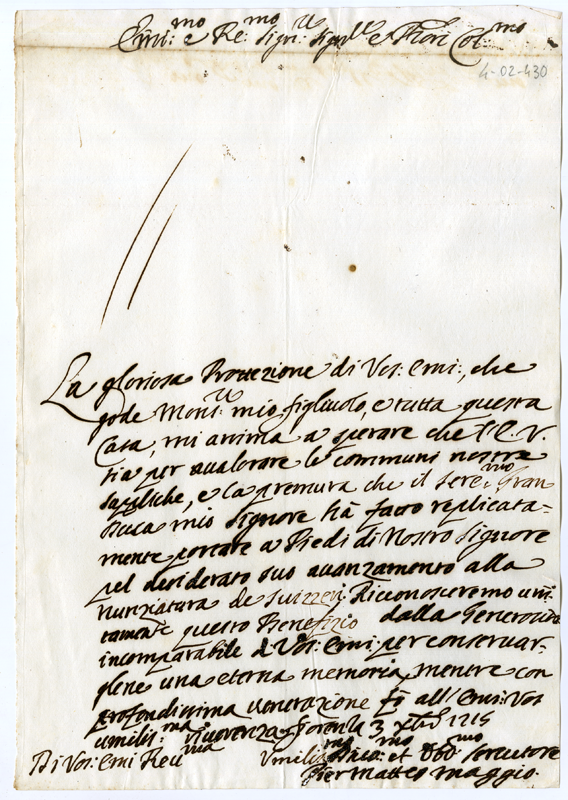 Emi:mo e Re:mo Sign:re Sig:re e Pron Col:mo
4-02-430
La gloriosa Protezione di Vos: Emi:, che
gode Mons:re mio figliuolo, e tutta questa
Casa, mi anima a sperare che l'E. V.
sia per avalorare le communi nostre
suppliche, e la premura che il Sere:mo Gran
Duca mio Signore hà fatto replicata-
mente portare a Piedi di Nostro Signore
pel desiderato suo avanzamento alla
nunziatura de Suizzeri. Riconosceremo uni-
tamente questo Benefizio dalla Generosità
incomparabile di Vos: Emi: per conservar-
glene una eterna memoria, mentre con
profondissima venerazione fò all'Emi: Vos
umilis:ma riverenza. Fiorenza 3 Xbre 1715
Di Vos: Emi Reu:ma
Umilis:mo Diuo:mo et Obb:mo Seruitore
Pier Matteo Maggio.